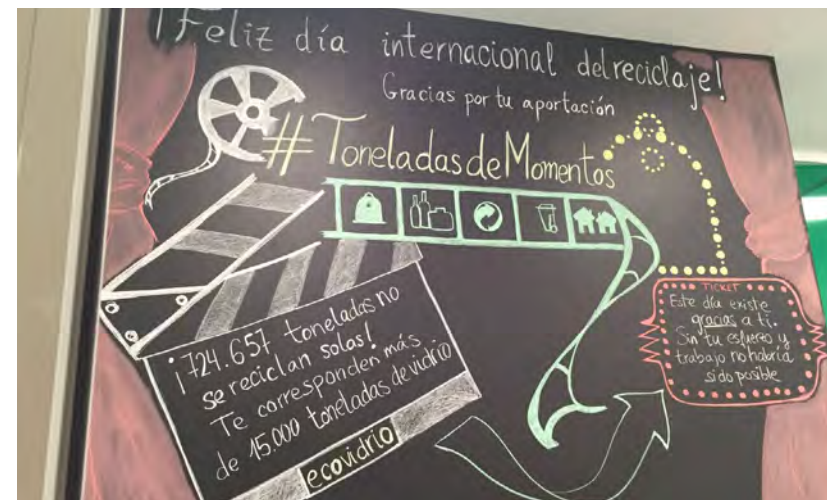 ¡Feliz día internacional del reciclaje!
Gracias por tu aportación
#ToneladasdeMomentos
¡724.657 toneladas no
se reciclan solas!
Te corresponden más
de 15.000 toneladas de vidrio
ecovidrio
TICKET
Este día existe
gracias a ti.
Sin tu esfuerzo y
trabajo no habría
sido posible